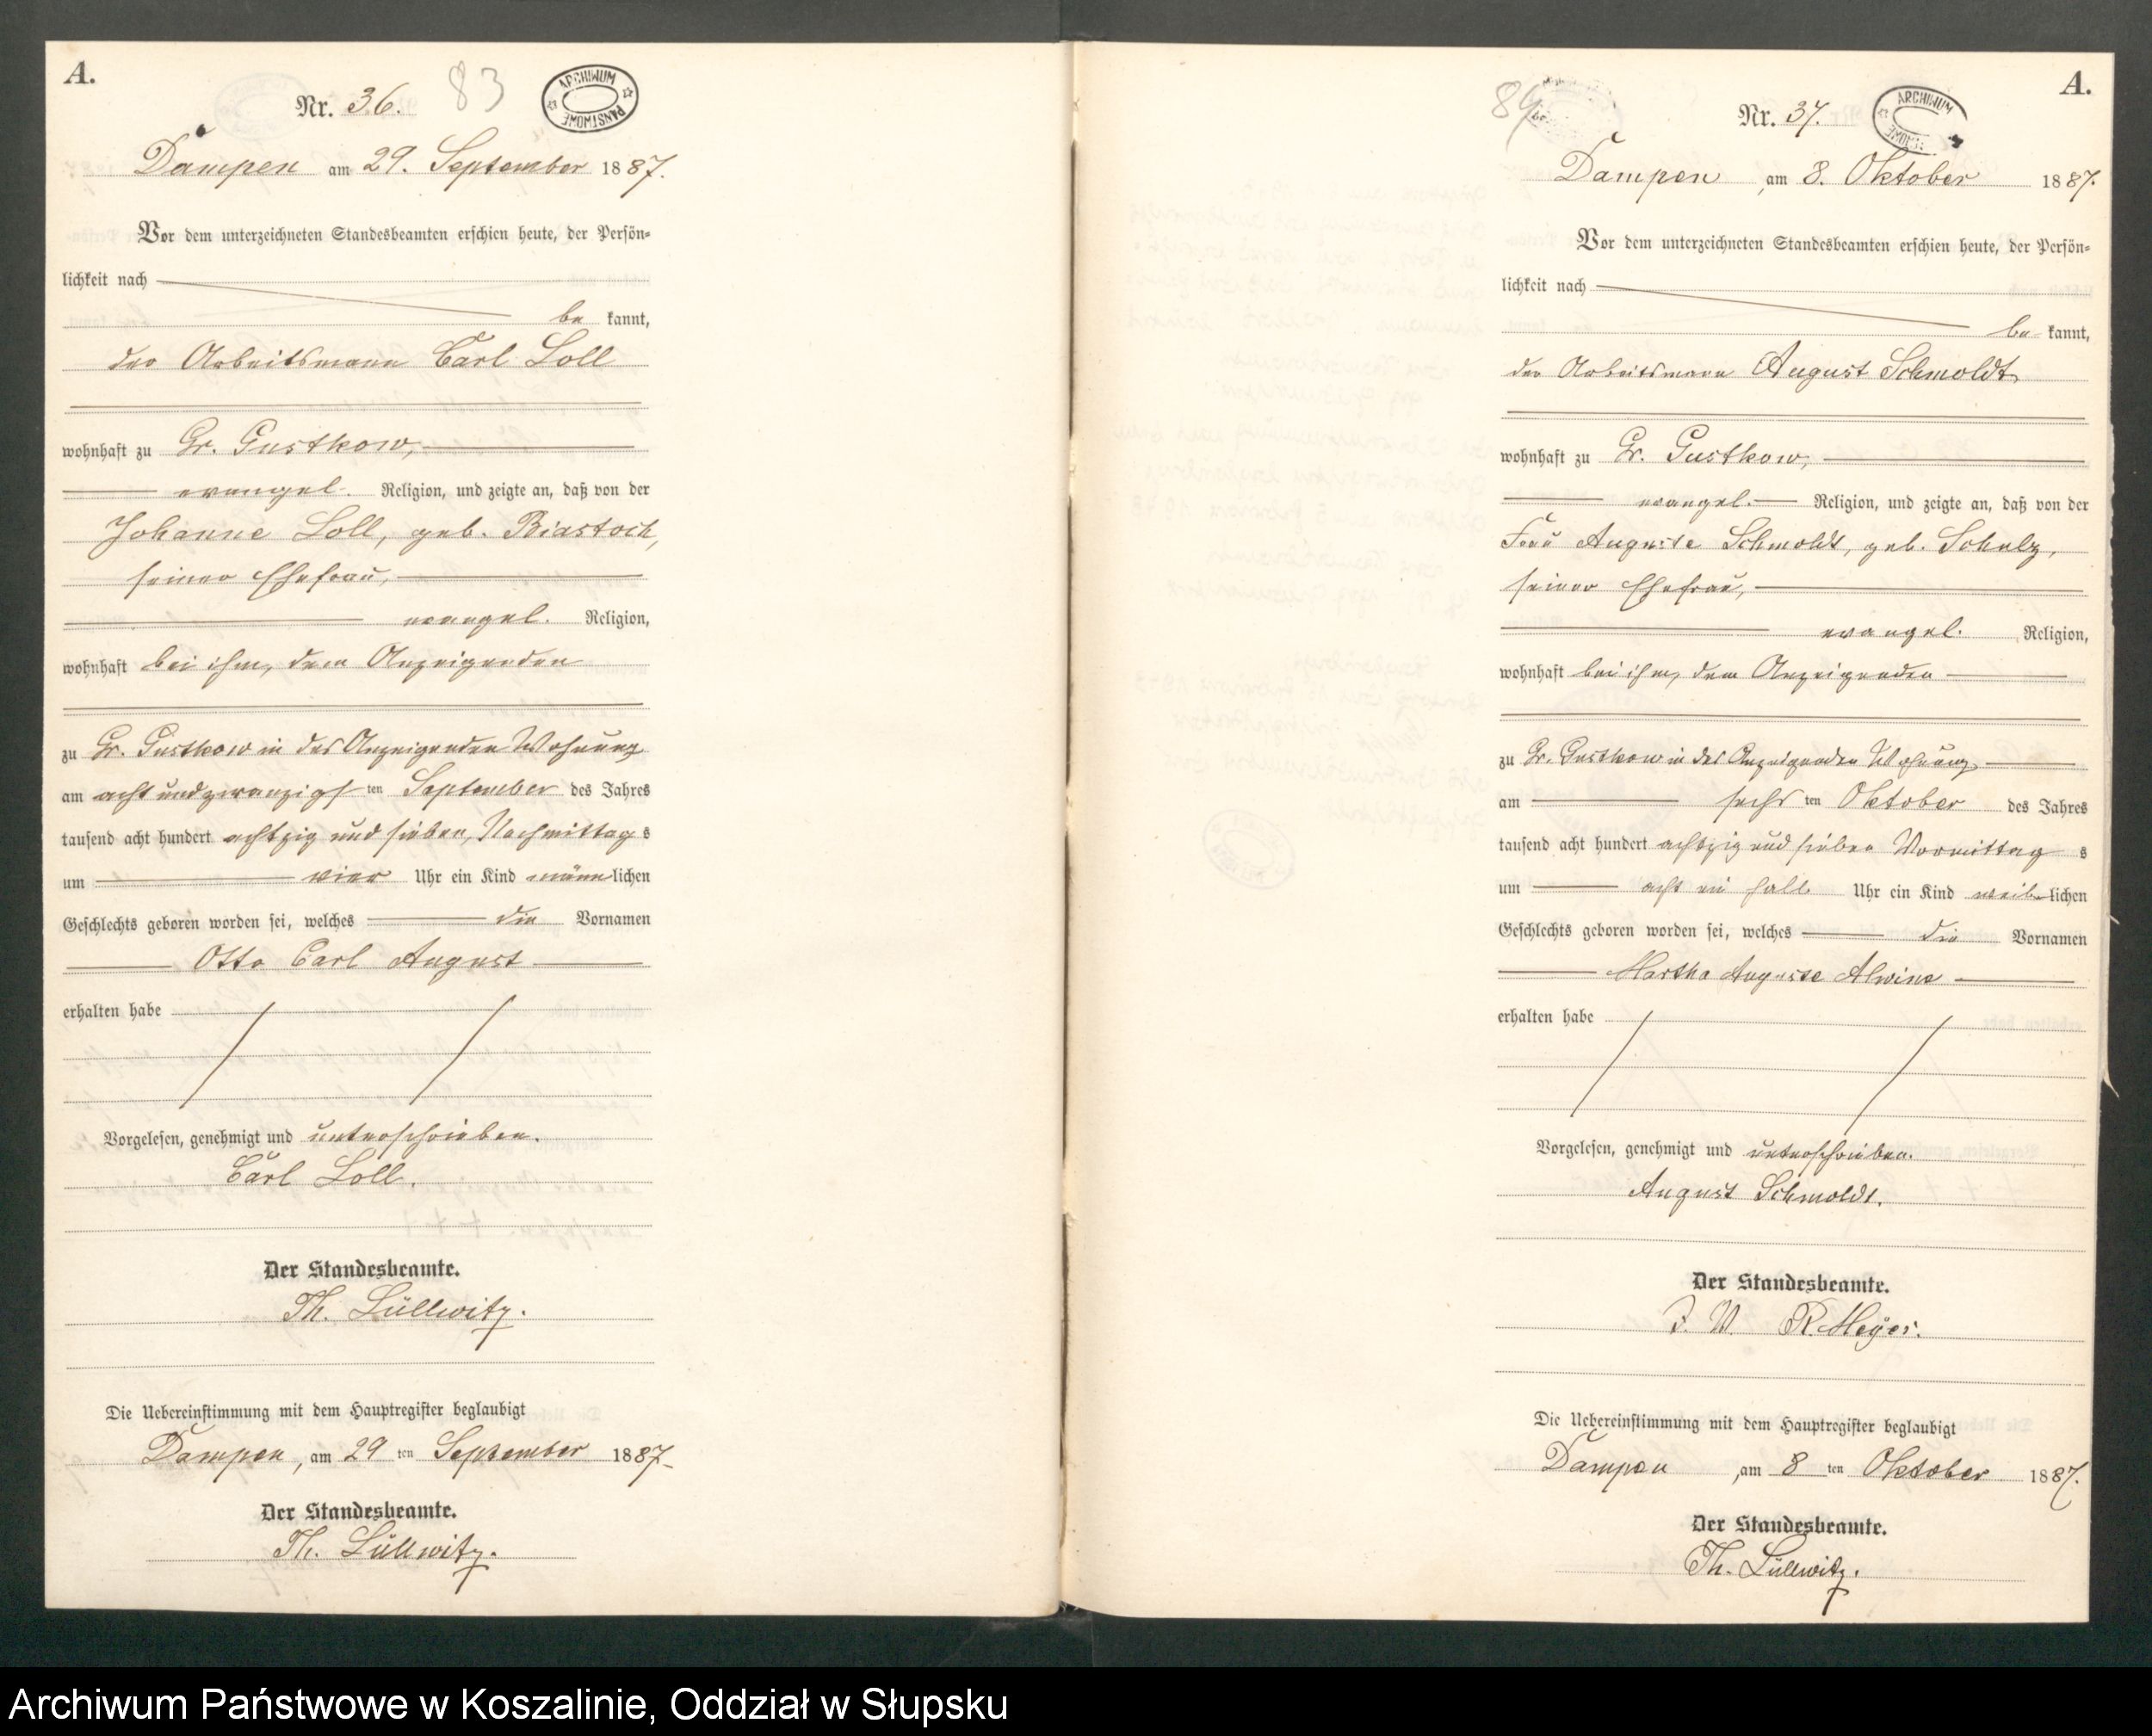 A.
Nr. 36.
83
ARCHIWUM PAŃSTWOWE
Dampen am 29. September 1887.
Vor dem unterzeichneten Standesbeamten erschien heute, der Persön-
lichkeit nach
be kannt,
der Arbeitsmann Carl Loll
wohnhaft zu Gr. Gustkow,
evangel. Religion, und zeigte an, daß von der
Johanne Loll, geb. Biastoch,
seiner Ehefrau,
evangel. Religion,
wohnhaft bei ihm, dem Anzeigenden
zu Gr. Gustkow in des Anzeigenden Wohnung
am acht und zwanzigsten September des Jahres
tausend acht hundert achtzig und sieben, Nachmittags
um vier Uhr ein Kind männlichen
Geschlechts geboren worden sei, welches die Vornamen
Otto Carl August
erhalten habe
Vorgelesen, genehmigt und unterschrieben.
Carl Loll.
Der Standesbeamte.
Th. Lüllwitz.
Die Uebereinstimmung mit dem Hauptregister beglaubigt
Dampen, am 29 ten September 1887.
Der Standesbeamte.
Th. Lüllwitz.
A.
84
Nr. 37.
ARCHIWUM
Dampen, am 8. Oktober 1887.
Vor dem unterzeichneten Standesbeamten erschien heute, der Persön-
lichkeit nach
be kannt,
der Arbeitsmann August Schmoldt
wohnhaft zu Gr. Gustkow,
evangel. Religion, und zeigte an, daß von der
Frau Auguste Schmoldt, geb. Schulz,
seiner Ehefrau,
evangel. Religion,
wohnhaft bei ihm, dem Anzeigenden
zu Gr. Gustkow in des Anzeigenden Wohnung
am sechsten Oktober des Jahres
tausend acht hundert achtzig und sieben Vormittags
um acht ein halb Uhr ein Kind weiblichen
Geschlechts geboren worden sei, welches die Vornamen
Martha Auguste Alwine
erhalten habe
Vorgelesen, genehmigt und unterschrieben.
August Schmoldt.
Der Standesbeamte.
J. V. R. Meyer.
Die Uebereinstimmung mit dem Hauptregister beglaubigt
Dampen, am 8 ten Oktober 1887.
Der Standesbeamte.
Th. Lüllwitz.
Archiwum Państwowe w Koszalinie, Oddział w Słupsku